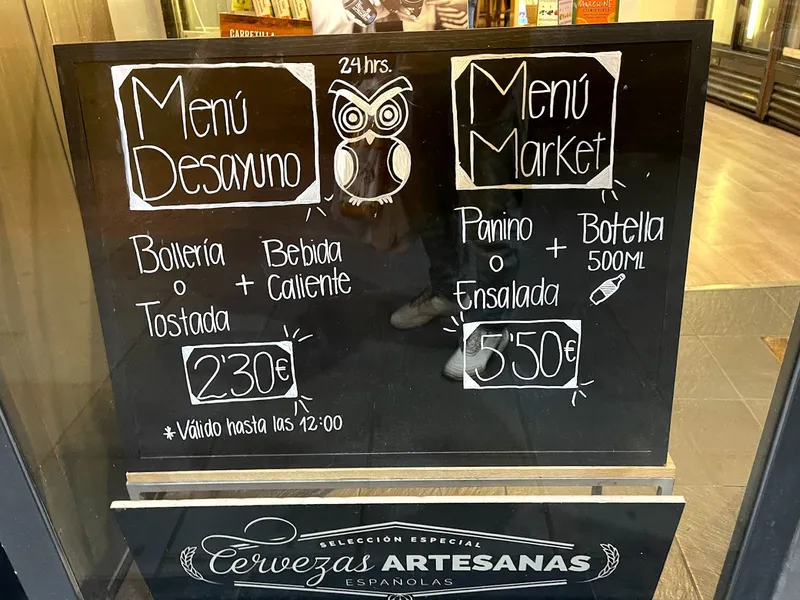 CARRETILLA
24 hrs.
Menú
Desayuno
Bollería
o
Tostada
+
Bebida
Caliente
2'30€
*Válido hasta las 12:00
Menú
Market
Panino
o
Ensalada
+
Botella
500ML
5'50€
SELECCIÓN ESPECIAL
Cervezas ARTESANAS
ESPAÑOLAS